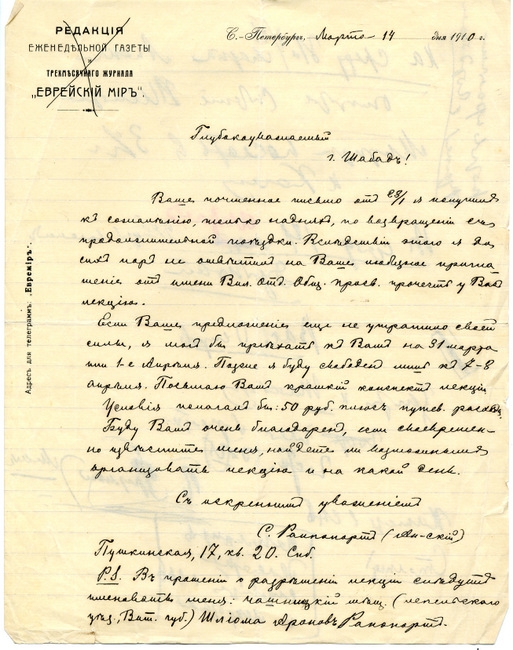 РЕДАКЦІЯ
ЕЖЕНЕДѢЛЬНОЙ ГАЗЕТЫ
и
ТРЕХМѢСЯЧНАГО ЖУРНАЛА
„ЕВРЕЙСКІЙ МІРЪ“.
С.-Петербургъ, Марта 14 дня 1910 г.
Глубокоуважаемый
г. Шабадъ!
Ваше почтенное письмо отъ 28/I я получилъ
къ сожалѣнію, только на дняхъ, по возвращеніи съ
продолжительной поѣздки. Вслѣдствіе этого я до
сихъ поръ не отвѣтилъ на Ваше любезное пригла-
шеніе отъ имени Вил. Отд. Общ. просв. прочесть у Васъ
лекцію.
Если Ваше предложеніе еще не утратило своей
силы, я могъ бы пріѣхать къ Вамъ на 31 марта
или 1-е Апрѣля. Позже я буду свободенъ лишь къ 7-8
апрѣля. Посылаю Вамъ краткій конспектъ лекціи
Условія полагалъ бы: 50 руб. плюсъ путев. расходы.
Буду Вамъ очень благодаренъ, если своевремен-
но извѣстите меня, найдете ли возможнымъ
организовать лекцію и на какой день.
Съ искреннимъ уваженіемъ
С. Раппопортъ (Ан-скій)
Пушкинская, 17, кв. 20. Спб.
P.S. Въ прошеніи о разрѣшеніи лекціи слѣдуетъ
именовать меня: чашницкій мѣщ. (лепельскаго
уѣз., Вит. губ.) Шліома Ароновъ Рапопортъ.
Адресъ для телеграммъ: „Евреміръ“.